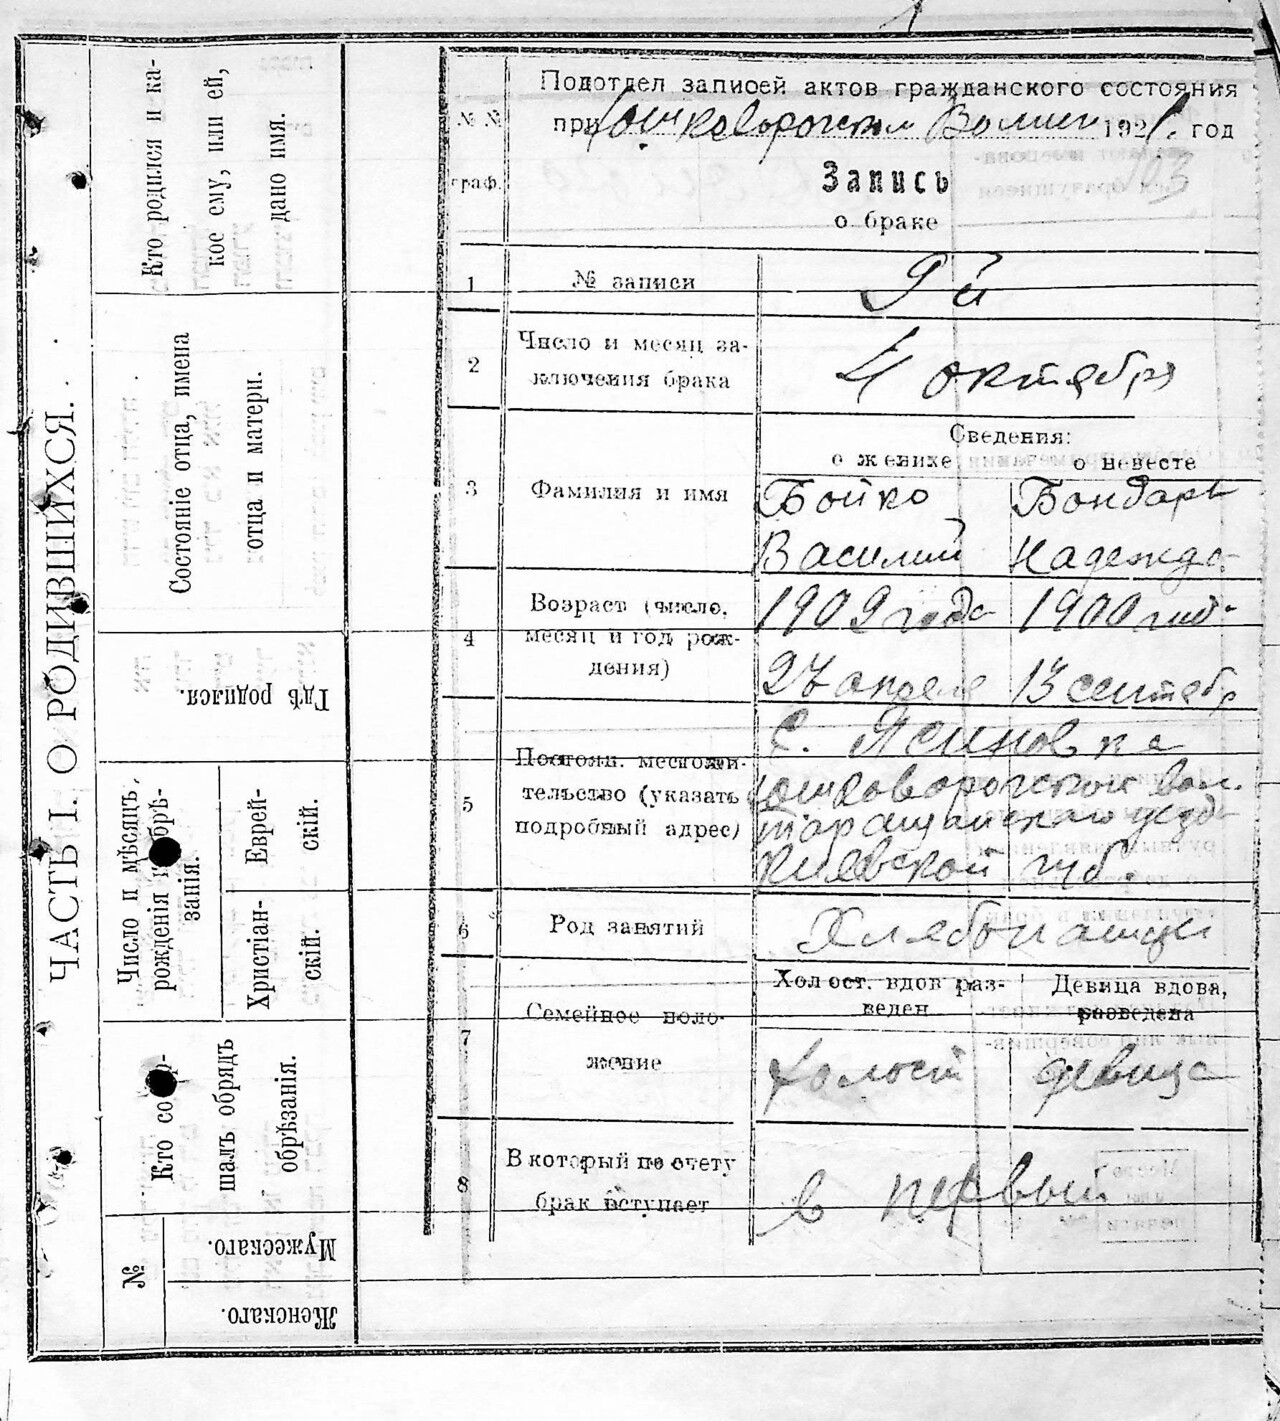 ЧАСТЬ I. О РОДИВШИХСЯ.
Кто родился и ка-
кое ему, или ей,
дано имя.
Состояніе отца, имена
отца и матери.
Гдѣ родился.
Число и мѣсяцъ
рожденія и обрѣ-
занія.
Христіан-
скій.
Еврей-
скій.
Кто со
шалъ обрядъ
обрѣзанія.
№
Мужескаго.
Женскаго.
№ №
граф.
Подотдел записей актов гражданского состояния
при 1921. год
103
Запись
о браке
1
№ записи
9й
2
Число и месяц за-
ключения брака
4 октября
3
Фамилия и имя
Сведения:
о женихе
о невесте
Бойко
Василий
Бондарь
Надежда
4
Возраст (число,
месяц и год рож-
дения)
1909 года
27 апреля
1900 года
13 сентябр
5
Постоян. местожи-
тельство (указать
подробный адрес)
С. Ясиновка
вол.
Таращанского уезда
Киевской губ.
6
Род занятий
Хлебопашцы
7
Семейное поло-
жение
Холост. вдов раз-
веден
Девица вдова,
разведена
холост
девица
8
В который по счету
брак вступает
в первый